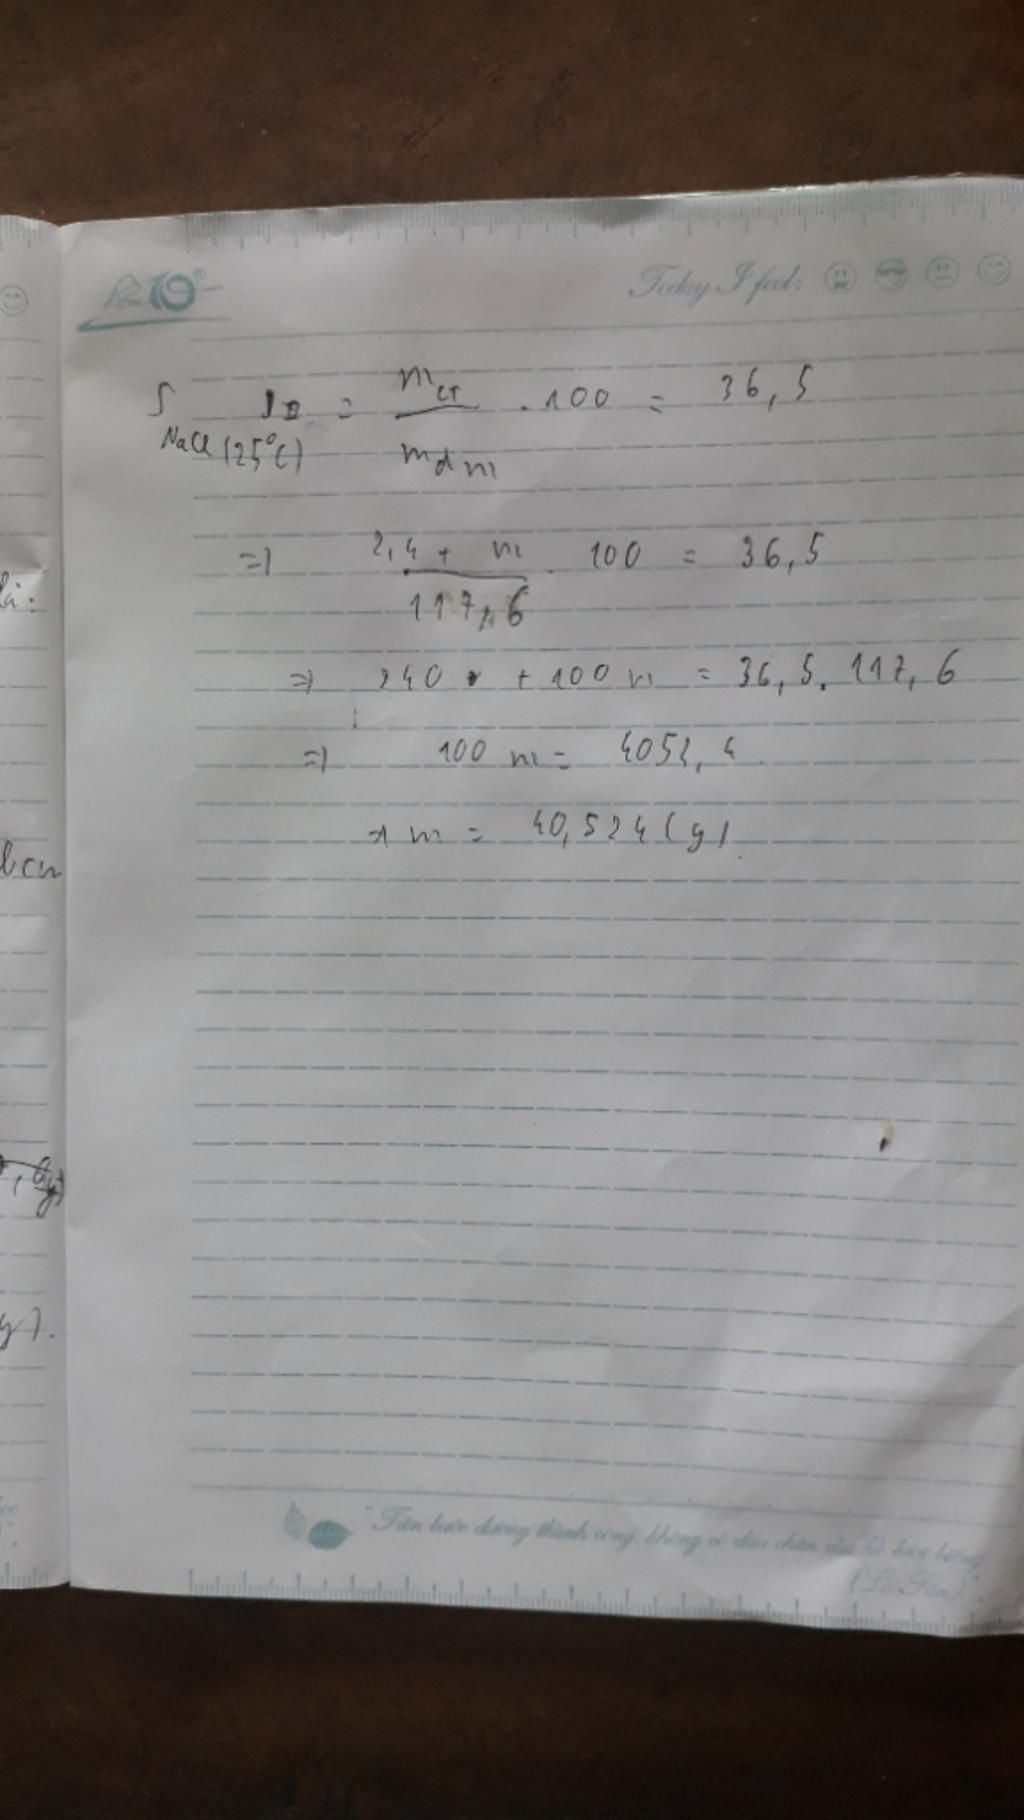 Today I feel:
S NaCl (25°C) = mct / mdm . 100 = 36,5
=> 2,4 + m / 117,6 . 100 = 36,5
=> 240 + 100 m = 36,5 . 117,6
=> 100 m = 4052,4
=> m = 40,524 (g)
"Trên bước đường thành công, không có dấu chân của kẻ lười biếng"
(Lỗ Tấn)